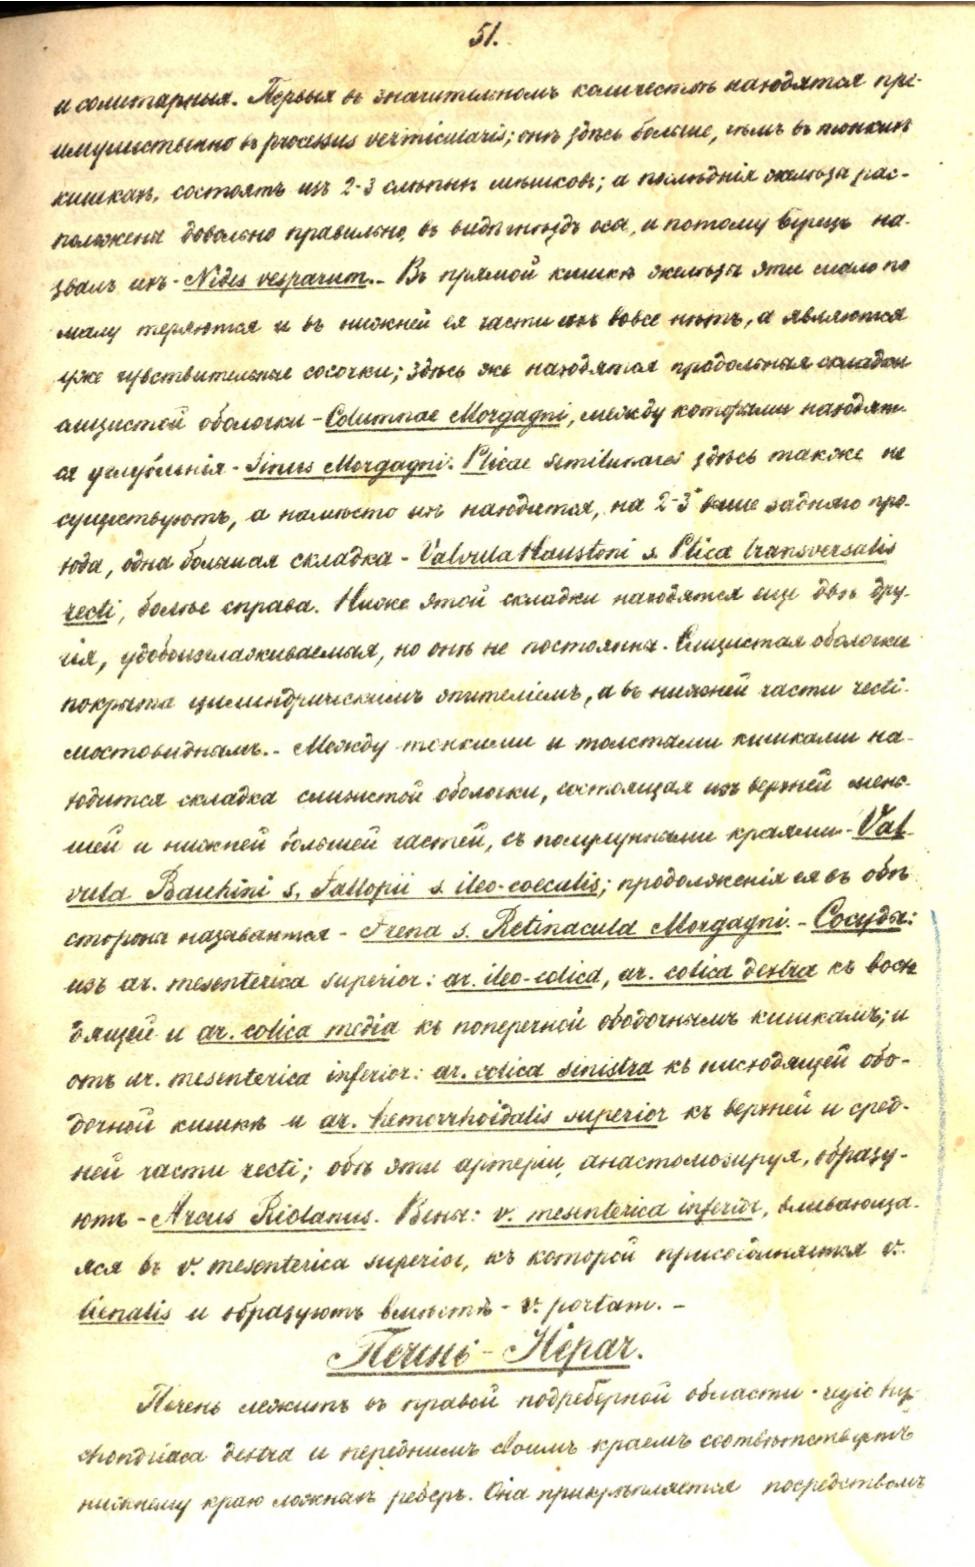 51.
и солитарныя. Первыя въ значительномъ количествѣ находятся пре-
имущественно въ processus vermicularis; онѣ здѣсь больше, чѣмъ въ тонкихъ
кишкахъ, состоятъ изъ 2-3 слѣпыхъ мѣшковъ; а послѣднія железы рас-
положены довольно правильно, въ видѣ гнѣздъ осъ, и потому Бурецъ на-
звалъ ихъ - Nides vesparum. - Въ прямой кишкѣ железы эти мало по
малу теряются и въ нижней ея части ихъ вовсе нѣтъ, а являются
уже чувствительные сосочки; здѣсь же находятся продольныя складки
слизистой оболочки - Columnae Morgagni, между которыми находят-
ся углубленія - Sinus Morgagni. Plicae semilunares здѣсь также не
существуютъ, а намѣсто ихъ находится, на 2-3" выше задняго про-
хода, одна большая складка - Valvula Haustoni s. Plica transversalis
recti, болѣе справа. Ниже этой складки находятся еще двѣ дру-
гія, удобоизглаживаемыя, но онѣ не постоянны. Слизистая оболочка
покрыта цилиндрическимъ эпителіемъ, а въ нижней части recti -
мостовиднымъ. - Между тонкими и толстыми кишками на-
ходится складка слизистой оболочки, состоящая изъ верхней мень-
шей и нижней большей частей, съ полулунными краями - Val-
vula Bauhini s. Fallopii s. ileo-coecalis; продолженія ея въ обѣ
стороны называются - Frena s. Retinacula Morgagni. - Сосуды:
изъ ar. mesenterica superior: ar. ileo-colica, ar. colica dextra къ восхо-
дящей и ar. colica media къ поперечной ободочнымъ кишкамъ; и
отъ ar. mesenterica inferior: ar. colica sinistra къ нисходящей обо-
дочной кишкѣ и ar. hemorrhoidalis superior къ верхней и сред-
ней части recti; обѣ эти артеріи, анастомозируя, образу-
ютъ - Arcus Riolanus. Вены: v. mesenterica inferior, вливающа-
яся въ v. mesenterica superior, къ которой присоединяется v.
lienalis и образуютъ вмѣстѣ - v. portam. -
Печень - Hepar.
Печень лежитъ въ правой подреберной области - regio hypo-
chondriaca dextra и переднимъ своимъ краемъ соотвѣтствуетъ
нижнему краю ложныхъ реберъ. Она прикрѣпляется посредствомъ